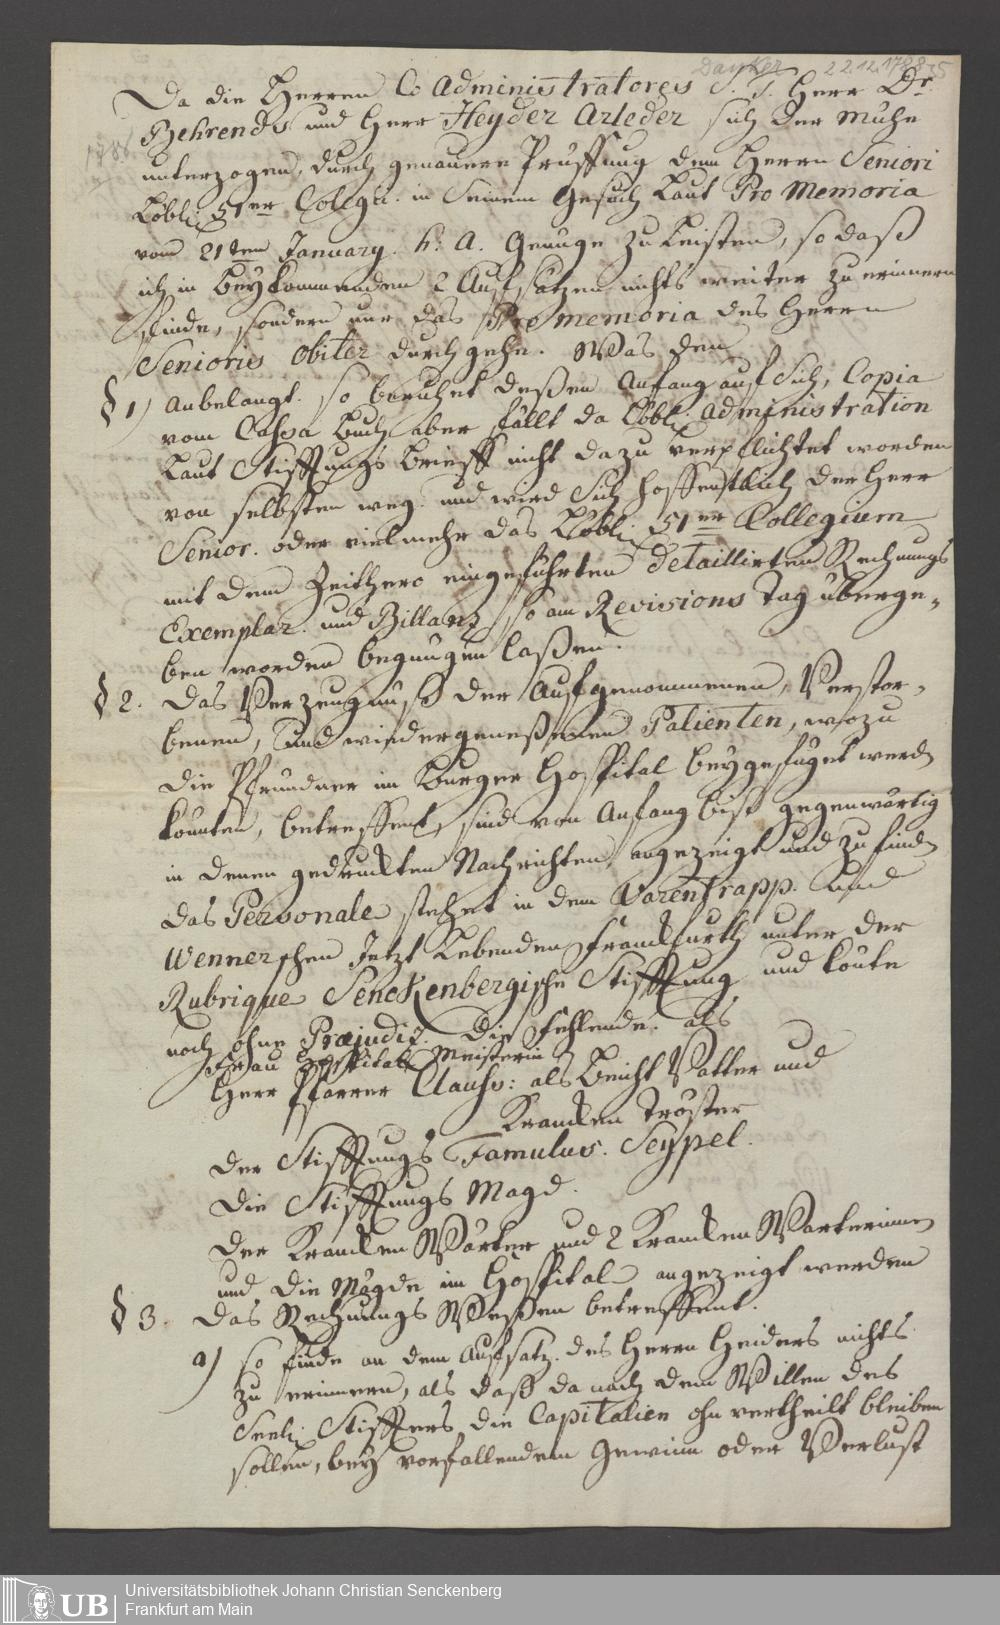 Danker 22.12.1788
1788
Da die Herren Co Administratores S. T. Herr Dr.
Behrends und Herr Heyder Arleder sich der Mühe
unterzogen, durch genauere Prüffung dem Herrn Seniori
Löbl. 51er Collegii in Seinem Gesuch laut Pro Memoria
vom 21ten January h. A. Genüge zu leisten, so daß
ich in beykommenden 2 Aufsätzen nichts weiter zu erinnern
finde, sondern nur das Pro memoria des Herrn
Senioris obiter durch gehe. Was den
§ 1) anbelangt so beruhet deßen Anfang auf sich, Copia
vom Cassa Buch aber fällt da Löbl. Administration
laut Stifftungs Brieff nicht dazu verpflichtet worden
von selbsten weg. und wird sich hoffentlich der Herr
Senior oder vielmehr das Löbl. 51er Collegium
mit dem zeithero eingeführten detaillirten Rechnungs
Exemplar und Billanz so am Revisions Tag überge-
ben worden begnügen laßen.
§ 2. Das Verzeugnuß der Aufgenommenen, Verstor-
benen, und wiedergeneßenen Patienten, wozu
die Pfründner im Burger Hospital beygefüget werden
könnten, betreffent, sind von Anfang biß gegenwärtig
in denen gedruckten Nachrichten angezeigt und zu finden
das Personale stehet in dem Varentrapp und
Wennerschen Jetzt Lebenden Franckfurth unter der
Rubrique Senckenbergische Stifftung und könte
noch ohne Præjudiz die Fehlende als
Frau Hospital Meisterin
Herr Pfarrer Clauss: als Beicht Vatter und
Krancken Tröster
Der Stifftungs Famulus Seypel.
Die Stifftungs Magd.
Der Krancken Wärter und 2 Krancken Wärterinnen
und die Mägde im Hospital angezeigt werden
§ 3. Das Rechnungs Weßen betreffent.
a) so finde an dem Aufsatz des Herrn Heiders nichts
zu erinnern, als daß da nach dem Willen des
Seel. Stiffters die Capitalien ohnvertheilt bleiben
sollen, bey vorfallendem Gewinn oder Verlust
UB
Universitätsbibliothek Johann Christian Senckenberg
Frankfurt am Main